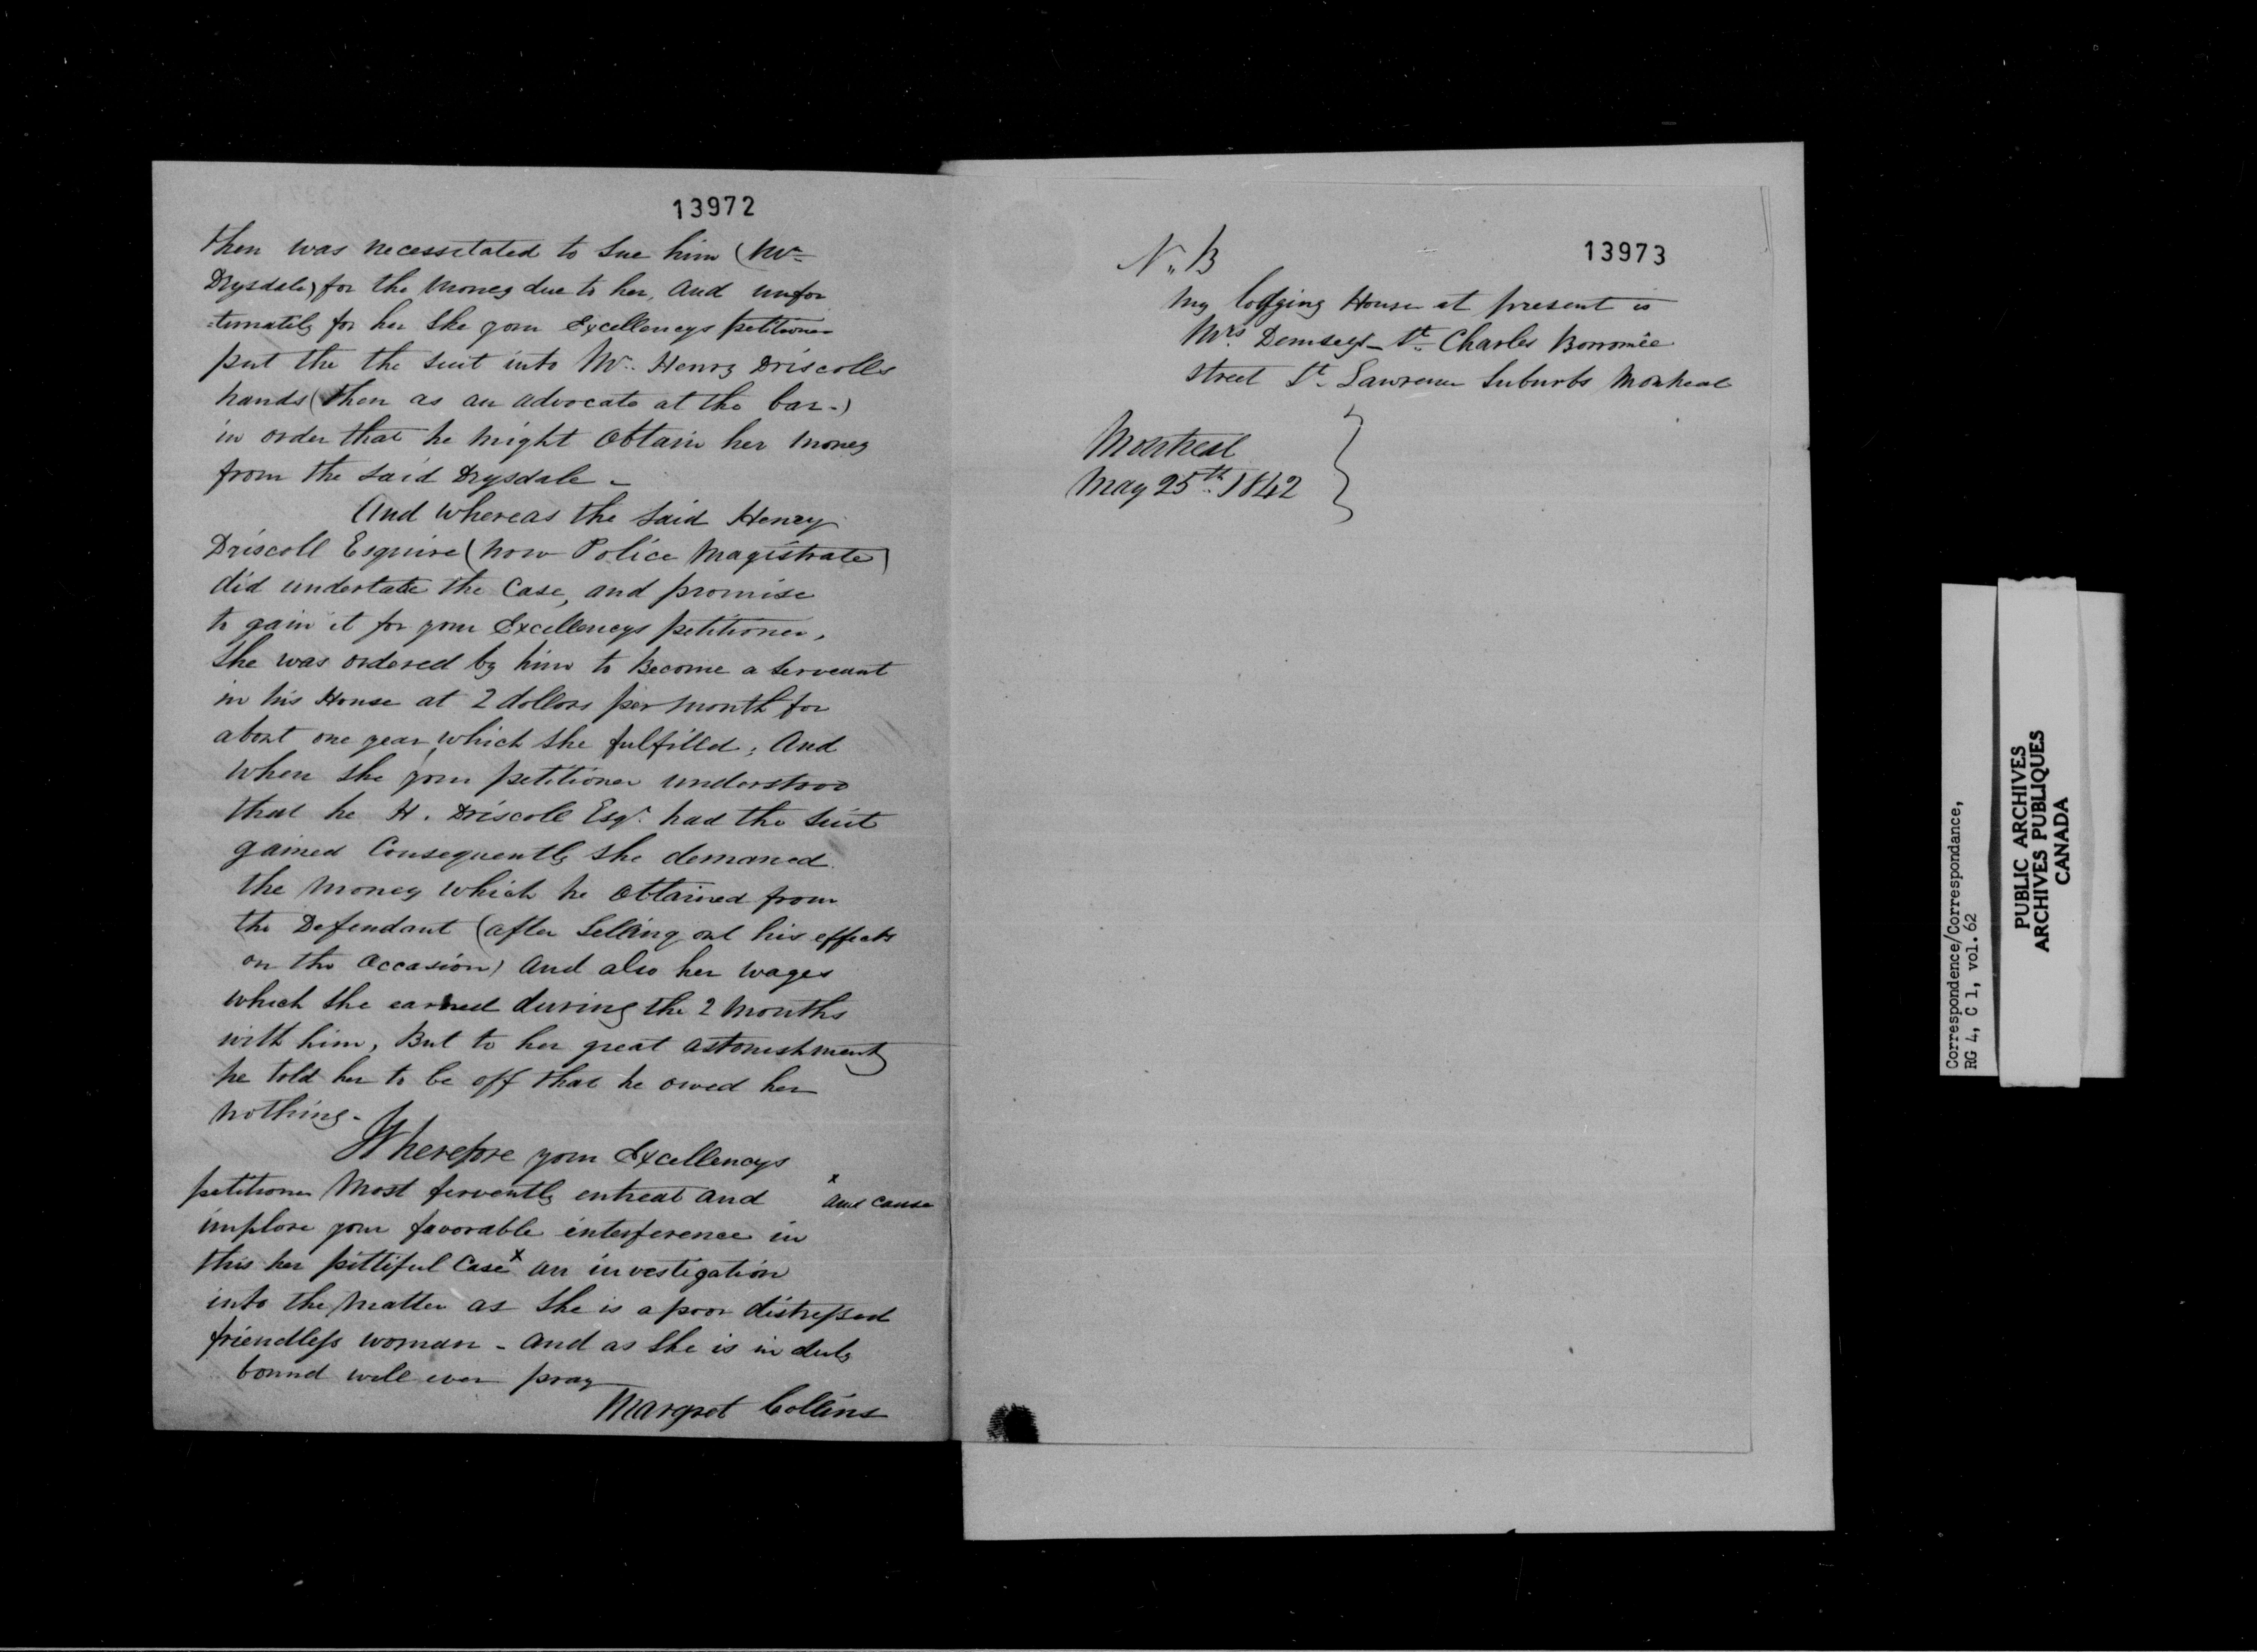 13972
then was necessitated to sue him (Mr
Drysdale) for the money due to her, and unfor
=tunately for her She your Excellencys petitioner
put the the suit into Mr. Henry Driscolls
hands (then as an advocate at the bar -)
in order that he might obtain her money
from the said Drysdale -
And whereas the said Henry
Driscoll Esquire (now Police Magistrate)
did undertake the Case, and promise
to gain it for your Excellencys petitioner,
She was ordered by him to become a serveant
in his House at 2 dollars per month for
about one year which she fulfilled; And
when she your petitioner understood
that he H. Driscoll Esqr. had the suit
gained Consequently she demaned
the money which he obtained from
the Defendant (after Selling out his effects
on the occasion) and also her wages
which she earned during the 2 months
with him, But to her great astonishment
he told her to be off that he owed her
nothing -
Wherefore your Excellencys
petitioner Most fervently entreat and
x and cause
implore your favorable interference in
this her pittiful Case x an investigation
into the matter as she is a poor distressed
friendless woman - and as she is in duty
bound will ever pray
Margret Collins
13973
N.. B
My lodging House at present is
Mrs. Demseys - St. Charles Borromée
street St. Lawrence Suburbs Montreal
Montreal
May 25th. 1842
Correspondence/Correspondance,
RG 4, C 1, vol. 62
PUBLIC ARCHIVES
ARCHIVES PUBLIQUES
CANADA